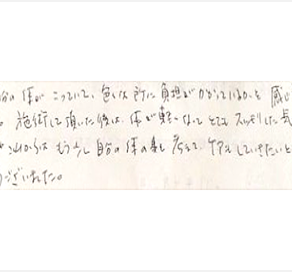 分の体がこっていて、色々な所に負担がかかっているのを感じ
。施術して頂いた後は、体が軽くなってとてもスッキリした気
これからはもう少し自分の体の事も考えて、ケアしていきたいと
うございました。